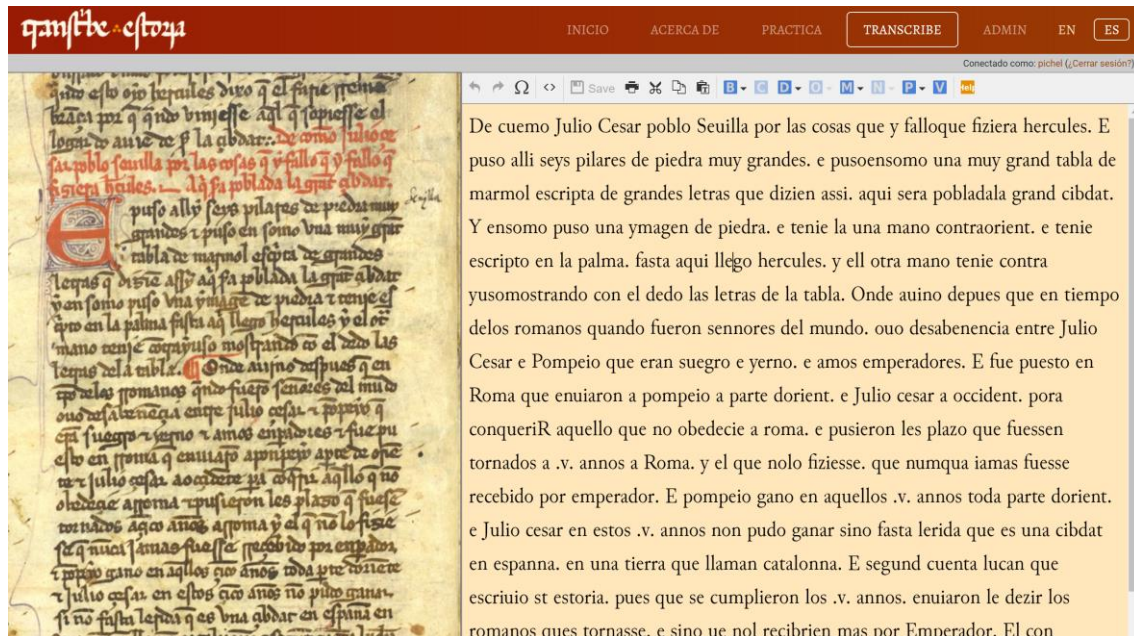 tranſcribe eſtoria
INICIO ACERCA DE PRACTICA TRANSCRIBE ADMIN EN ES
Conectado como: pichel (¿Cerrar sesión?)
q̃ndo eſto oyo hercules dixo q̃ el
logar
ſar poblo ſeuilla por las coſas q̃ y fallo q̃ y fallo q̃
fiziera hercules. Aq̃ ſa poblada la gr̃at cibdat.
Seuilla
E puſo ally ſeys pilares de piedra muy
grandes τ puſo en ſomo vna muy gr̃at
tabla de marmol eſcp̃ta de grandes
letras q̃ dizie aſſy aq̃ ſa poblada la gr̃at cibdat
y en ſomo puſo vna ymagẽ de piedra τ tenie eſ
cp̃to en la palma faſta aq̃ llego hercules y el ot̃
mano tenie cõtrayuſo moſtrando cõ el dedo las
letras dela tabla. Onde auino deſpues q̃ en
tp̃o delos rromanos q̃ndo fuerõ ſeñores del mũdo
ouo deſabenẽcia entre julio ceſar τ põpeyo q̃
erã ſuegro τ yerno τ amos enp̃adores τ fue pu
eſto en rroma q̃ enuiarõ aponpeyo apte de oriẽ
te τ julio ceſar aoccidẽte
obedecie arroma τ puſieron les plazo q̃ fueſẽ
tornados aq̃co años arroma y el q̃ no lo fizie
ſe q̃ nũca jamas fueſſe rrecebido por enp̃ador,
τ põpeyo gano en aq̃llos çĩco años toda pte doriẽte
τ julio ceſar en eſtos çĩco años nõ pudo ganar
ſi nõ faſta lerida q̃ es vna cibdat en eſpaña en
Save B C D O M N P V Help
De cuemo Julio Cesar poblo Seuilla por las cosas que y falloque fiziera hercules. E
puso alli seys pilares de piedra muy grandes. e pusoensomo una muy grand tabla de
marmol escripta de grandes letras que dizien assi. aqui sera pobladala grand cibdat.
Y ensomo puso una ymagen de piedra. e tenie la una mano contraorient. e tenie
escripto en la palma. fasta aqui llego hercules. y ell otra mano tenie contra
yusomostrando con el dedo las letras de la tabla. Onde auino depues que en tiempo
delos romanos quando fueron sennores del mundo. ouo desabenencia entre Julio
Cesar e Pompeio que eran suegro e yerno. e amos emperadores. E fue puesto en
Roma que enuiaron a pompeio a parte dorient. e Julio cesar a occident. pora
conqueriR aquello que no obedecie a roma. e pusieron les plazo que fuessen
tornados a .v. annos a Roma. y el que nolo fiziesse. que numqua iamas fuesse
recebido por emperador. E pompeio gano en aquellos .v. annos toda parte dorient.
e Julio cesar en estos .v. annos non pudo ganar sino fasta lerida que es una cibdat
en espanna. en una tierra que llaman catalonna. E segund cuenta lucan que
escriuio st estoria. pues que se cumplieron los .v. annos. enuiaron le dezir los
romanos ques tornasse. e sino ue nol recibrien mas por Emperador. El con